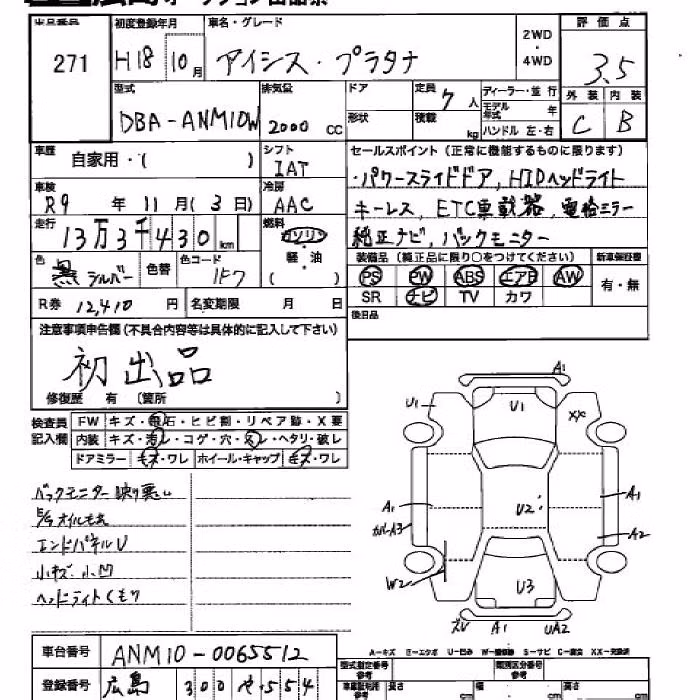 出品番号 初度登録年月 車名・グレード 2WD・4WD 評価点
271 H18 10月 アイシス・プラタナ 3.5
型式 排気量 ドア 定員 7人 ディーラー・並行 外装 内装
DBA-ANM10W 2000 CC 形状 積載 kg モデル年式 年 ハンドル 左・右 C B
車歴 自家用・( ) シフト IAT セールスポイント (正常に機能するものに限ります)
車検 R9年 11月(3日) 冷房 AAC ・パワースライドドア, HIDヘッドライト
走行 13万3千430km 燃料 ガソリン・軽・油 ( ) キーレス, ETC車載器, 電格ミラー
純正ナビ, バックモニター
色 黒 シルバー 色替 色コード 1F7 装備品 (純正品に限り○をつけてください) 新車保証書
PS PW ABS エアB AW 有・無
SR ナビ TV カワ
R券 12,410円 名変期限 月 日 後日品
注意事項申告欄 (不具合内容等は具体的に記入して下さい)
初出品
修復歴 有 〔箇所 〕
検査員記入欄 FW キズ・飛石・ヒビ割・リペア跡・X要
内装 キズ・汚レ・コゲ・穴・スレ・ヘタリ・破レ
ドアミラー キズ・ワレ ホイール・キャップ キズ・ワレ
バックモニター映り悪い
E/gオイルモレ
エンドパネルU
小キズ, 小凹
ヘッドライトくもり
A1
U1 U1 XX
A1 U2 A1
カバーA3 A2
W2 U3
A1 UA2
A-キズ E-エクボ U-凹み W-補修跡 S-サビ C-腐食 XX-交換済
車台番号 ANM10-0065512 型式指定番号 参考 類別区分番号 参考
登録番号 広島 300 や 554 長さ cm 幅 cm 高さ cm